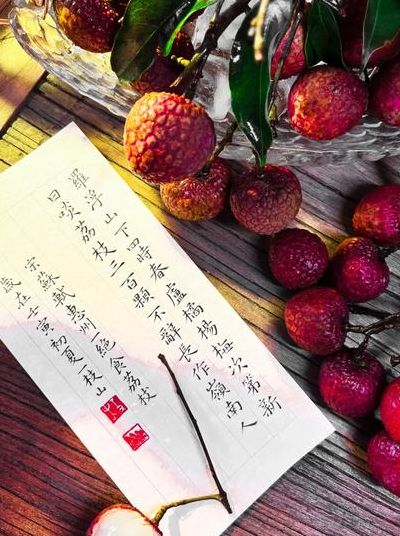 羅浮山下四時春盧橘楊梅次第新
日啖荔枝三百顆不辭長作嶺南人
宋蘇軾惠州一絕食荔枝
歲在壬寅初夏一枝山